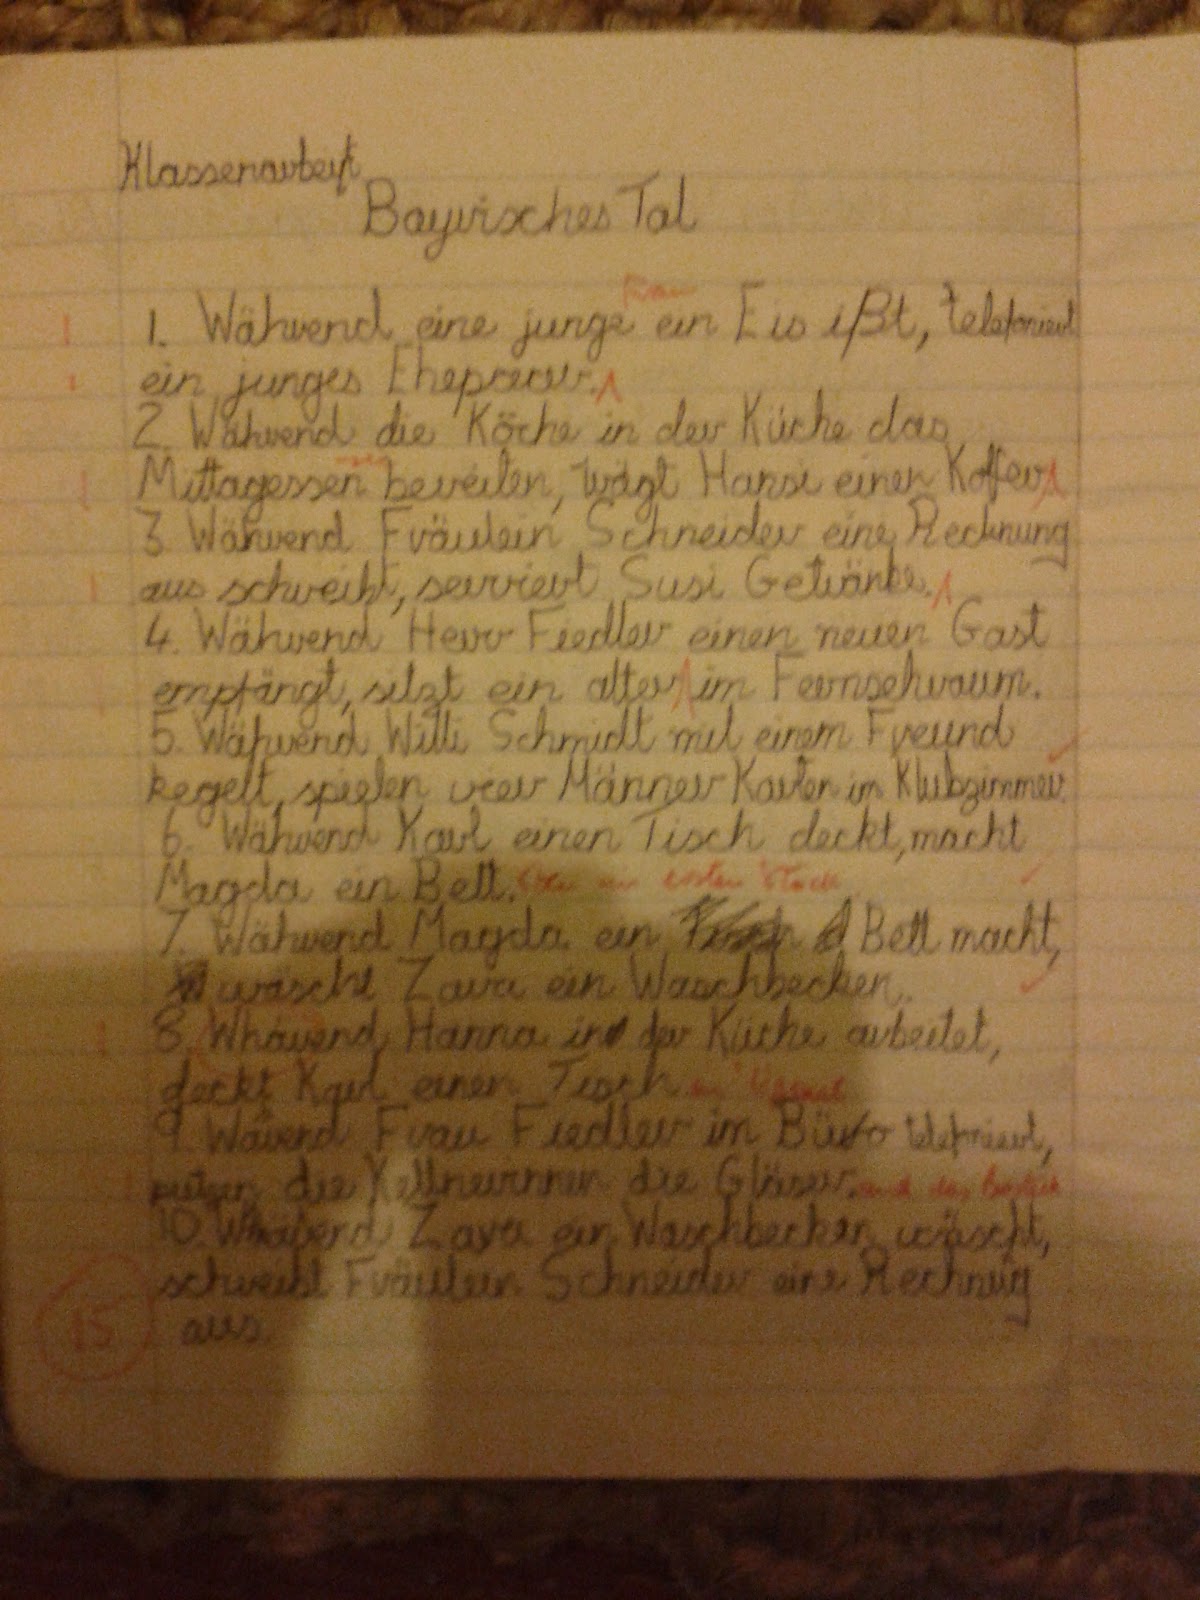 Klassenarbeit
Bayrisches Tal
Frau
1. Während eine junge ein Eis ißt, telefoniert
ein junges Ehepaar.
2. Während die Köche in der Küche das
Mittagessen bereiten, trägt Hansi einen Koffer
3. Während Fräulein Schneider eine Rechnung
aus schreibt, serviert Susi Getränke.
4. Während Herr Fiedler einen neuen Gast
empfängt, sitzt ein alter im Fernsehraum.
5. Während Willi Schmidt mit einem Freund
kegelt, spielen vier Männer Karten im Klubzimmer.
6. Während Karl einen Tisch deckt, macht
Magda ein Bett. im ersten Stock
7. Während Magda ein Bett macht,
wäscht Zara ein Waschbecken.
8. Whärend Hanna in der Küche arbeitet,
deckt Karl einen Tisch
9. Wärend Frau Fiedler im Büro telefoniert,
putzen die Kellnerinnen die Gläser. und das Besteck
10. Whärend Zara ein Waschbecken wäscht,
schreibt Fräulein Schneider eine Rechnug
aus.
15